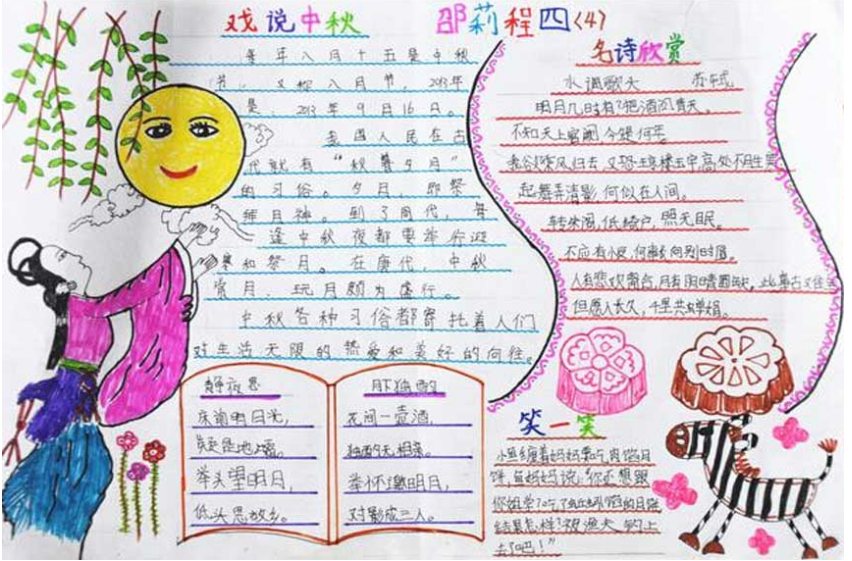 戏说中秋
邵莉程四〈4〉
每年八月十五是中秋
节，又称八月节，2013年
是，2013年9月16日。
我国人民在古
代就有“秋暮夕月”
的习俗。夕月，即祭
拜月神。到了周代，每
逢中秋夜都要举行迎
寒和祭月。在唐代，中秋
赏月、玩月颇为盛行。
中秋各种习俗都寄托着人们
对生活无限的热爱和美好的向往。
名诗欣赏
水调歌头 苏轼
明月几时有？把酒问青天。
不知天上宫阙，今夕是何年。
我欲乘风归去，又恐玉宇，高处不胜寒
起舞弄清影，何似在人间。
转朱阁，低绮户，照无眠。
不应有恨，何时别时圆。
人有悲欢离合，月有阴晴圆缺，此事古难全
但愿人长久，千里共婵娟。
静夜思
床前明月光，
疑是地上霜。
举头望明月，
低头思故乡。
月下独酌
花间一壶酒，
独酌无相亲。
举杯邀明月，
对影成三人。
笑一笑
小鱼缠着妈妈要吃肉馅月
饼，鱼妈妈说：“你还想跟
你姐学？吃了蚯蚓馅的月饼
结果怎样？被渔夫钓上
去了吧！”